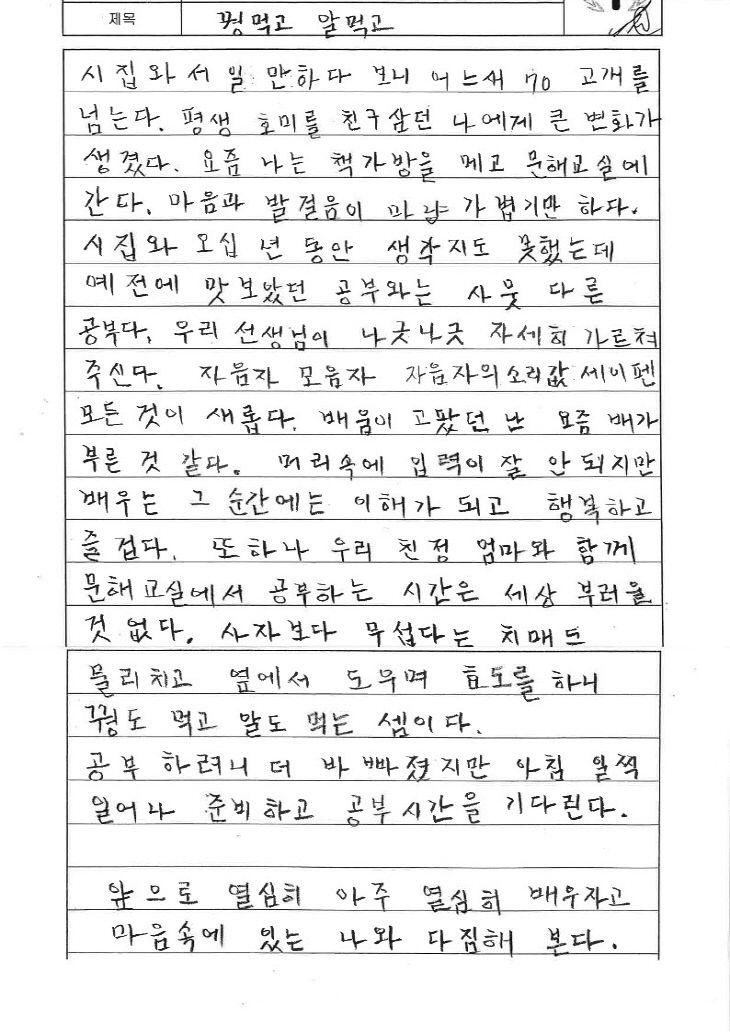 제목 꿩먹고 알먹고
시집와서 일 만하다 보니 어느새 70 고개를
넘는다. 평생 호미를 친구삼던 나에게 큰 변화가
생겼다. 요즘 나는 책가방을 메고 문해교실에
간다. 마음과 발걸음이 마냥 가볍기만 하다.
시집와 오십 년 동안 생각지도 못했는데
예전에 맛보았던 공부와는 사뭇 다른
공부다. 우리 선생님이 나긋나긋 자세히 가르쳐
주신다. 자음자 모음자 자음자의소리값 세이펜
모든 것이 새롭다. 배움이 고팠던 난 요즘 배가
부른 것 같다. 머리속에 입력이 잘 안되지만
배우는 그 순간에는 이해가 되고 행복하고
즐겁다. 또하나 우리 친정 엄마와 함께
문해교실에서 공부하는 시간은 세상 부러울
것 없다. 사자보다 무섭다는 치매도
물리치고 옆에서 도우며 효도를 하니
꿩도 먹고 알도 먹는 셈이다.
공부 하려니 더 바빠졌지만 아침 일찍
일어나 준비하고 공부시간을 기다린다.
앞으로 열심히 아주 열심히 배우자고
마음속에 있는 나와 다짐해 본다.